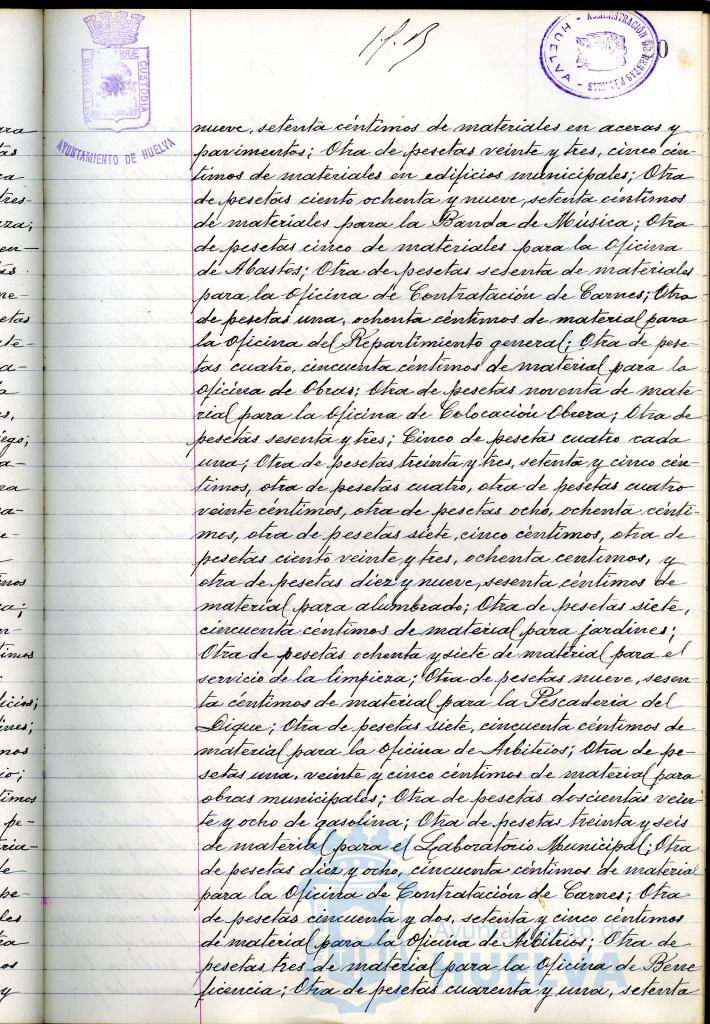 ADMINISTRACIÓN DE RENTAS PÚBLICAS - HUELVA -
0
CUSTODIA
AYUNTAMIENTO DE HUELVA
nueve, setenta céntimos de materiales en aceras y
pavimentos; Otra de pesetas veinte y tres, cinco cén-
timos de materiales en edificios municipales; Otra
de pesetas ciento ochenta y nueve, setenta céntimos
de materiales para la Banda de Música; Otra
de pesetas cinco de materiales para la Oficina
de Abastos; Otra de pesetas sesenta de materiales
para la Oficina de Contratación de Carnes; Otra
de pesetas una, ochenta céntimos de material para
la Oficina del Repartimiento general; Otra de pese-
tas cuatro, cincuenta céntimos de material para la
Oficina de Obras; Otra de pesetas noventa de mate-
rial para la Oficina de Colocación Obrera; Otra de
pesetas sesenta y tres; Cinco de pesetas cuatro cada
una; Otra de pesetas treinta y tres, setenta y cinco cén-
timos, otra de pesetas cuatro, otra de pesetas cuatro
veinte céntimos, otra de pesetas ocho, ochenta cénti-
mos, otra de pesetas siete, cinco céntimos, otra de
pesetas ciento veinte y tres, ochenta centimos, y
otra de pesetas diez y nueve, sesenta céntimos de
material para alumbrado; Otra de pesetas siete,
cincuenta céntimos de material para jardines;
Otra de pesetas ochenta y siete de material para el
servicio de la limpieza; Otra de pesetas nueve, sesen-
ta céntimos de material para la Pescaderia del
Dique; Otra de pesetas siete, cincuenta céntimos de
material para la Oficina de Arbitrios; Otra de pe-
setas una, veinte y cinco céntimos de material para
obras municipales; Otra de pesetas doscientas vein-
te y ocho de gasolina; Otra de pesetas treinta y seis
de material para el Laboratorio Municipal; Otra
de pesetas diez y ocho, cincuenta céntimos de material
para la Oficina de Contratación de Carnes; Otra
de pesetas cincuenta y dos, setenta y cinco céntimos
de material para la Oficina de Arbitrios; Otra de
pesetas tres de material para la Oficina de Bene
ficencia; Otra de pesetas cuarenta y una, setenta
Ayuntamiento de
HUELVA